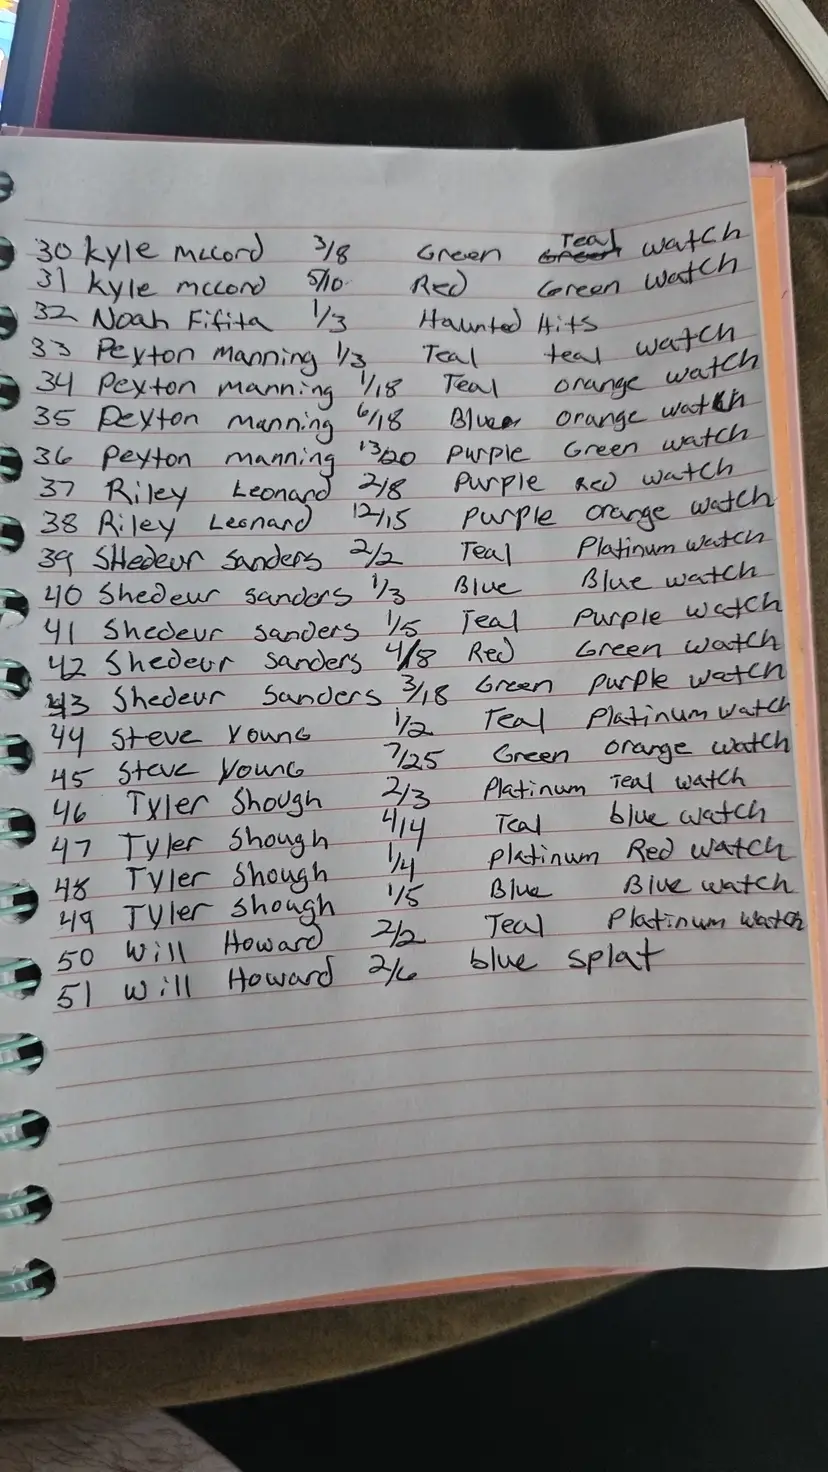 30 Kyle McCord 3/8 Green Teal watch
31 Kyle mccord 5/10 Red Green watch
32 Noah Fifita 1/3 Haunted Hits
33 Peyton Manning 1/3 Teal teal watch
34 Peyton manning 1/18 Teal orange watch
35 Peyton manning 6/18 Blue orange watch
36 Peyton manning 13/20 purple Green watch
37 Riley Leonard 2/8 purple Red watch
38 Riley Leonard 12/15 purple orange watch
39 SHedeur Sanders 2/2 Teal Platinum watch
40 Shedeur Sanders 1/3 Blue Blue watch
41 Shedeur Sanders 1/5 Teal purple watch
42 Shedeur Sanders 4/8 Red Green watch
43 Shedeur Sanders 3/18 Green purple watch
44 Steve Young 1/2 Teal Platinum watch
45 Steve Young 7/25 Green orange watch
46 Tyler Shough 2/3 Platinum Teal watch
47 Tyler Shough 4/14 Teal blue watch
48 Tyler Shough 1/4 Platinum Red watch
49 Tyler Shough 1/5 Blue Blue watch
50 Will Howard 2/2 Teal Platinum watch
51 Will Howard 2/6 blue splat